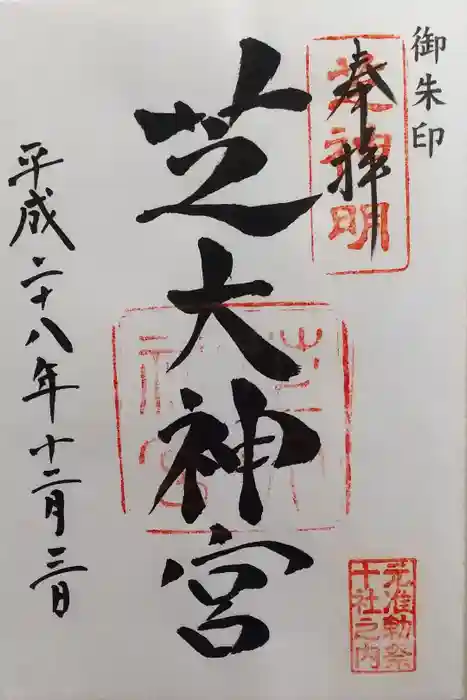 御朱印
奉拝
芝神明
芝大神宮
元准勅祭
十社之内
平成二十八年十二月三日